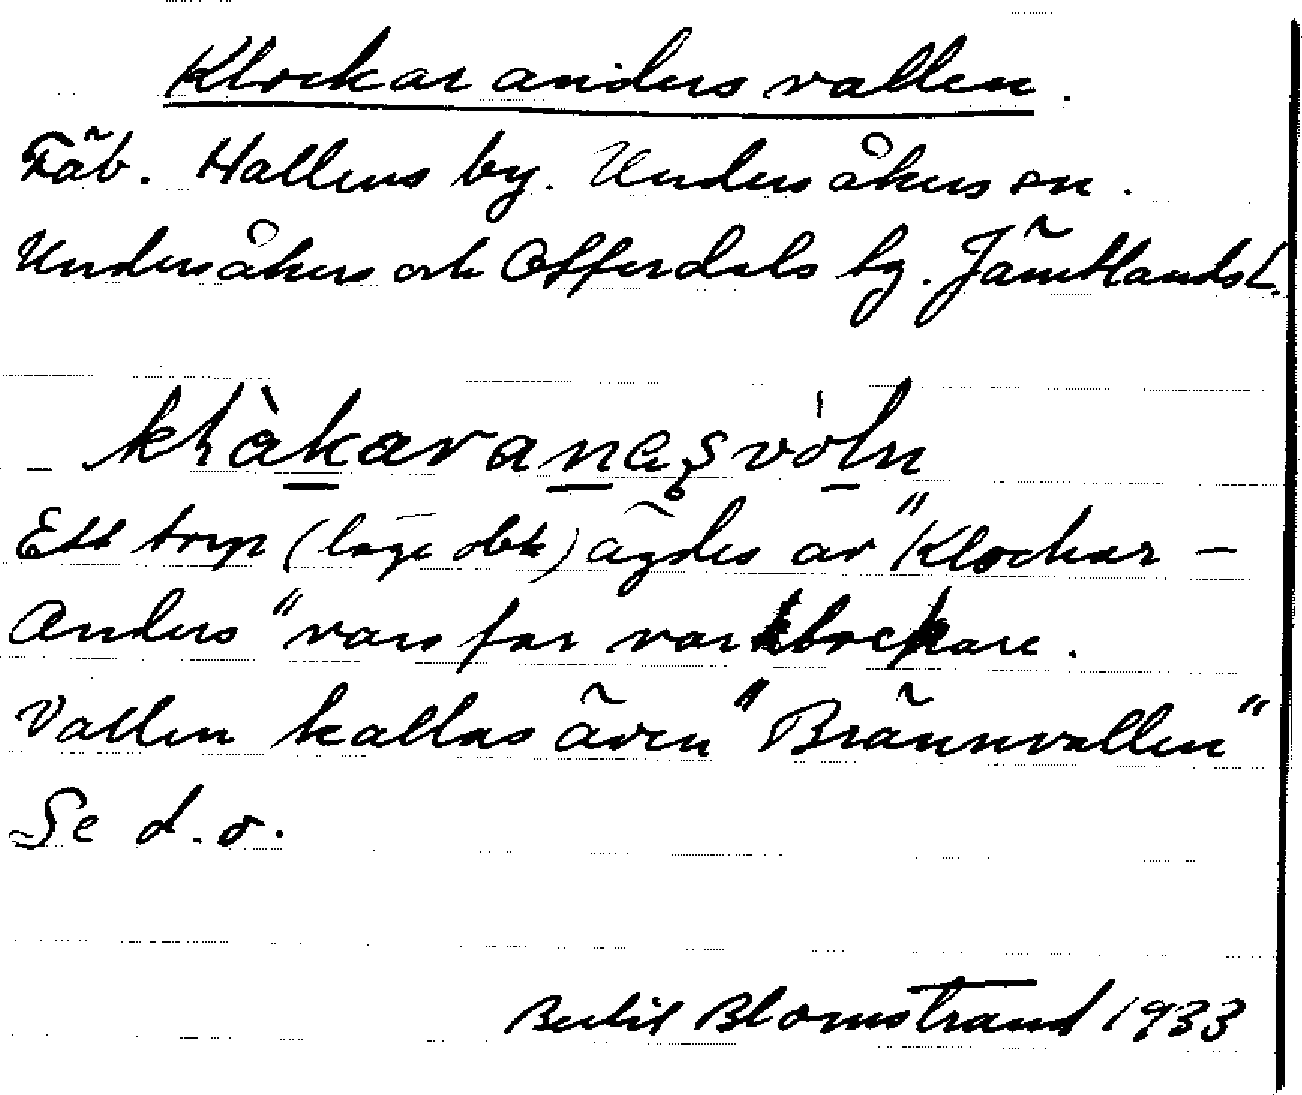 Klockarandersvallen.
Fäb. Hallens by. Undersåkers sn.
Undersåkers och Offerdals tg. Jämtlands L.
kḷàkaranaşvòln
Ett torp (läge obk) ägdes av "Klockar-
Anders" vars far var klockare.
Vallen kallas även "Brännvallen"
Se d.o.
Bertil Blomstrand 1933